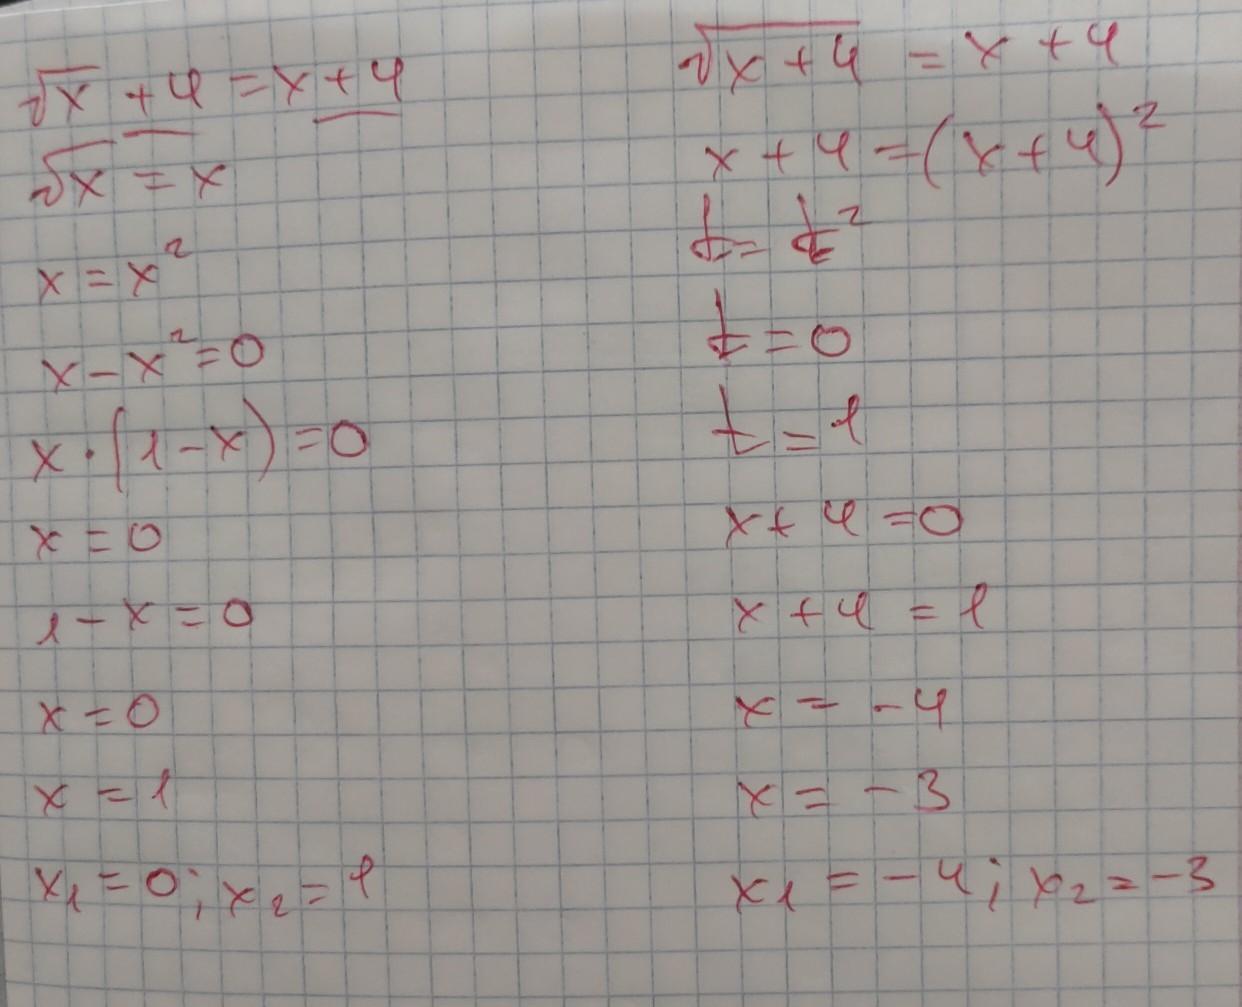 √x + 4 = x + 4
√x = x
x = x²
x − x² = 0
x · (1 − x) = 0
x = 0
1 − x = 0
x = 0
x = 1
x₁ = 0; x₂ = 1
√(x + 4) = x + 4
x + 4 = (x + 4)²
t = t²
t = 0
t = 1
x + 4 = 0
x + 4 = 1
x = −4
x = −3
x₁ = −4; x₂ = −3